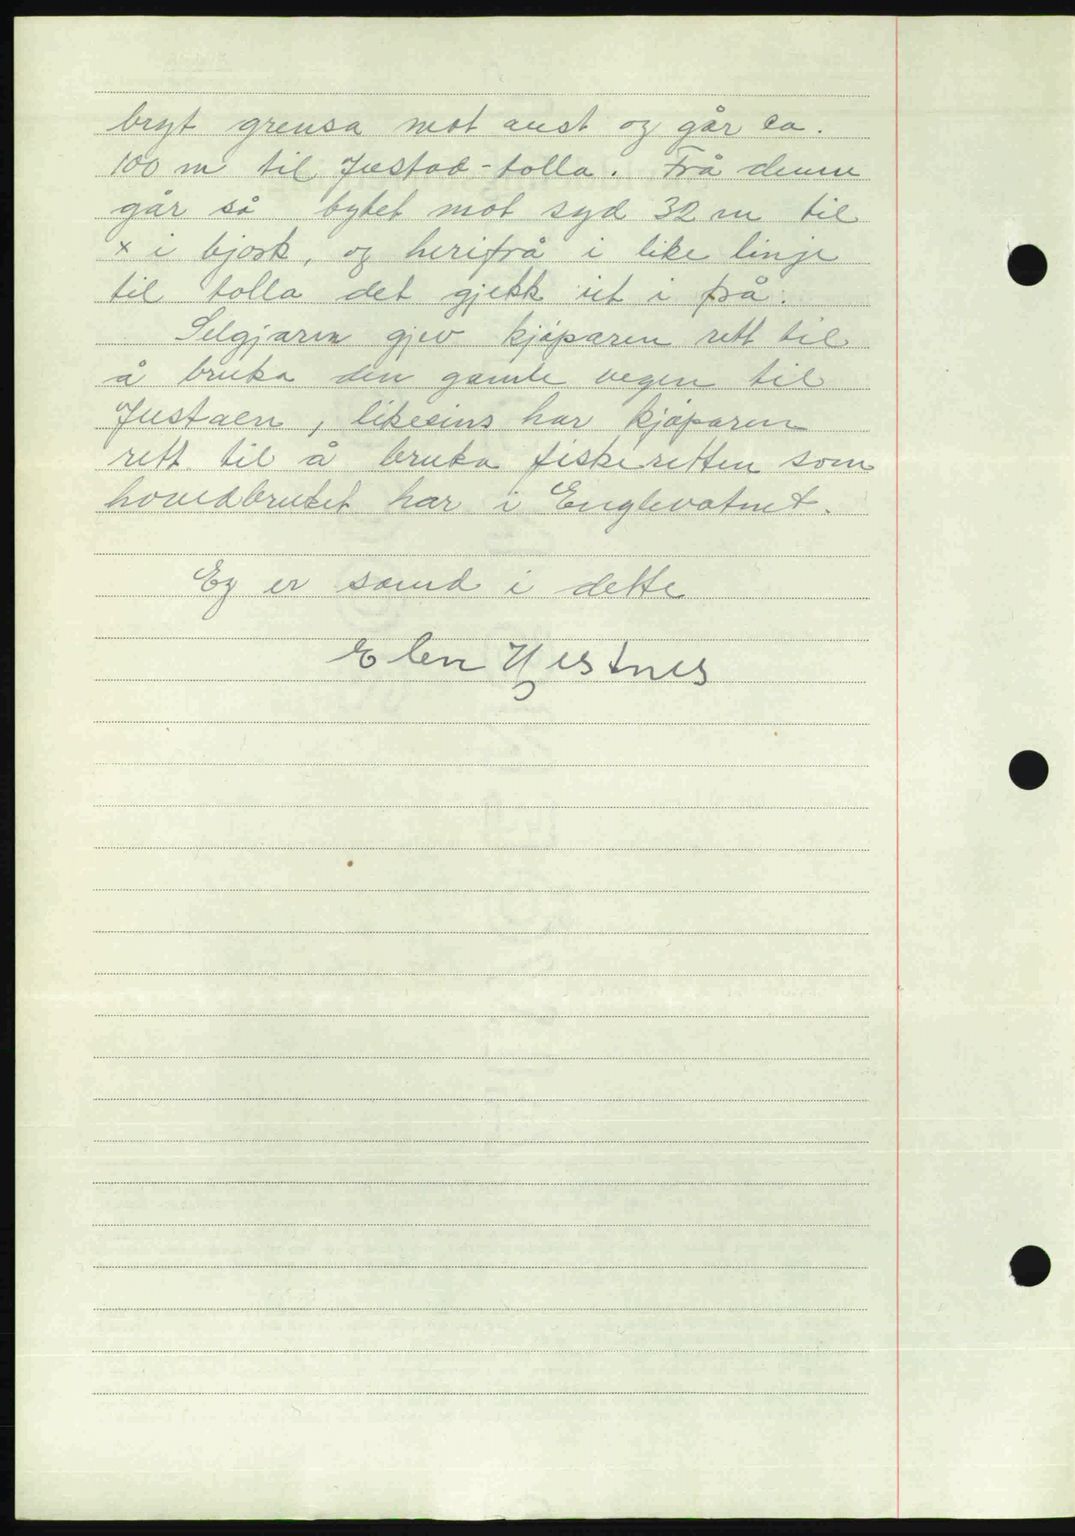 bryt grensa mot aust og går ca.
100 m til Justad-tolla. Frå denne
går så bytet mot syd 32 m til
x i bjørk, og herifrå i like linje
til tolla det gjekk ut i frå.
Selgjaren gjev kjøparen rett til
å bruka den gamle vegen til
likesins har kjøparen
rett til å bruka fiskeretten som
hovedbruket har i Englevatnet.
Eg er samd i dette
Elen